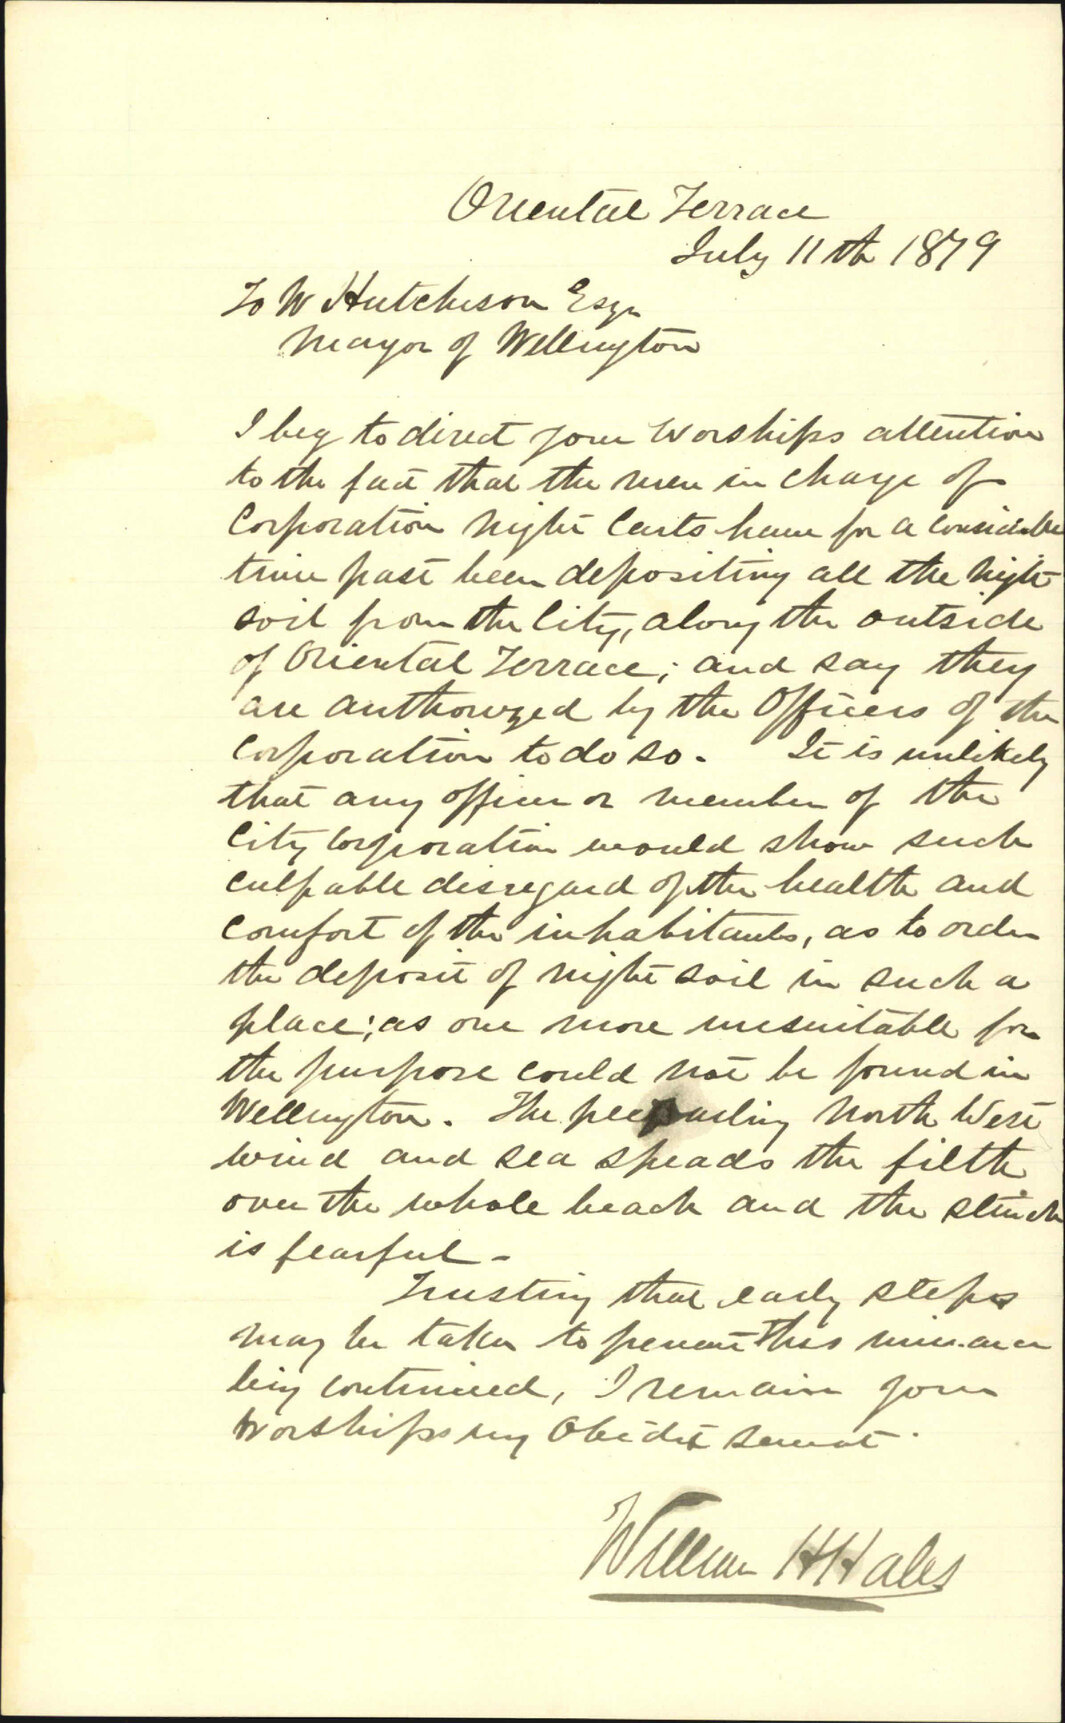 Oriental Terrace
July 11th 1879
To W Hutchison Esqr
Mayor of Wellington
I beg to direct your Worships attention
to the fact that the men in charge of
Corporation night Carts have for a considerable
time past been depositing all the night
soil from the City, along the outside
of Oriental Terrace; and say they
are authorized by the Officers of the
Corporation to do so. It is unlikely
that any officer or member of the
City Corporation would show such
culpable disregard of the health and
comfort of the inhabitants, as to order
the deposit of night soil in such a
place; as one more unsuitable for
the purpose could not be found in
Wellington. The prevailing North West
wind and sea spreads the filth
over the whole beach and the stench
is fearful -
Trusting that early steps
may be taken to prevent this nuisance
being continued, I remain your
Worships Obedt Servant
William H Hales